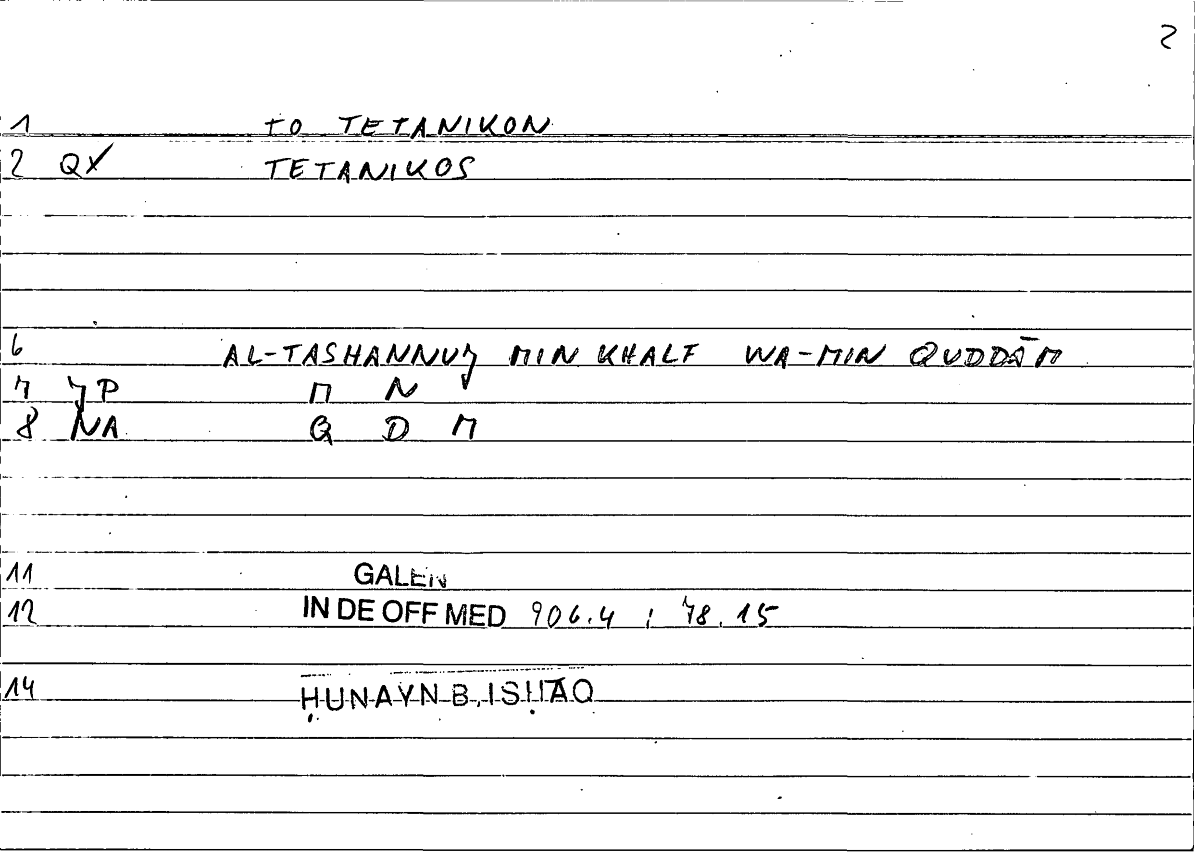 2
1 TO TETANIKON
2 QX TETANIKOS
6 AL-TASHANNUJ MIN KHALF WA-MIN QUDDĀM
7 JP M N
8 NA Q D M
11 GALEN
12 IN DE OFF MED 906.4 ; 78.15
14 ḤUNAYN B. ISḤĀQ